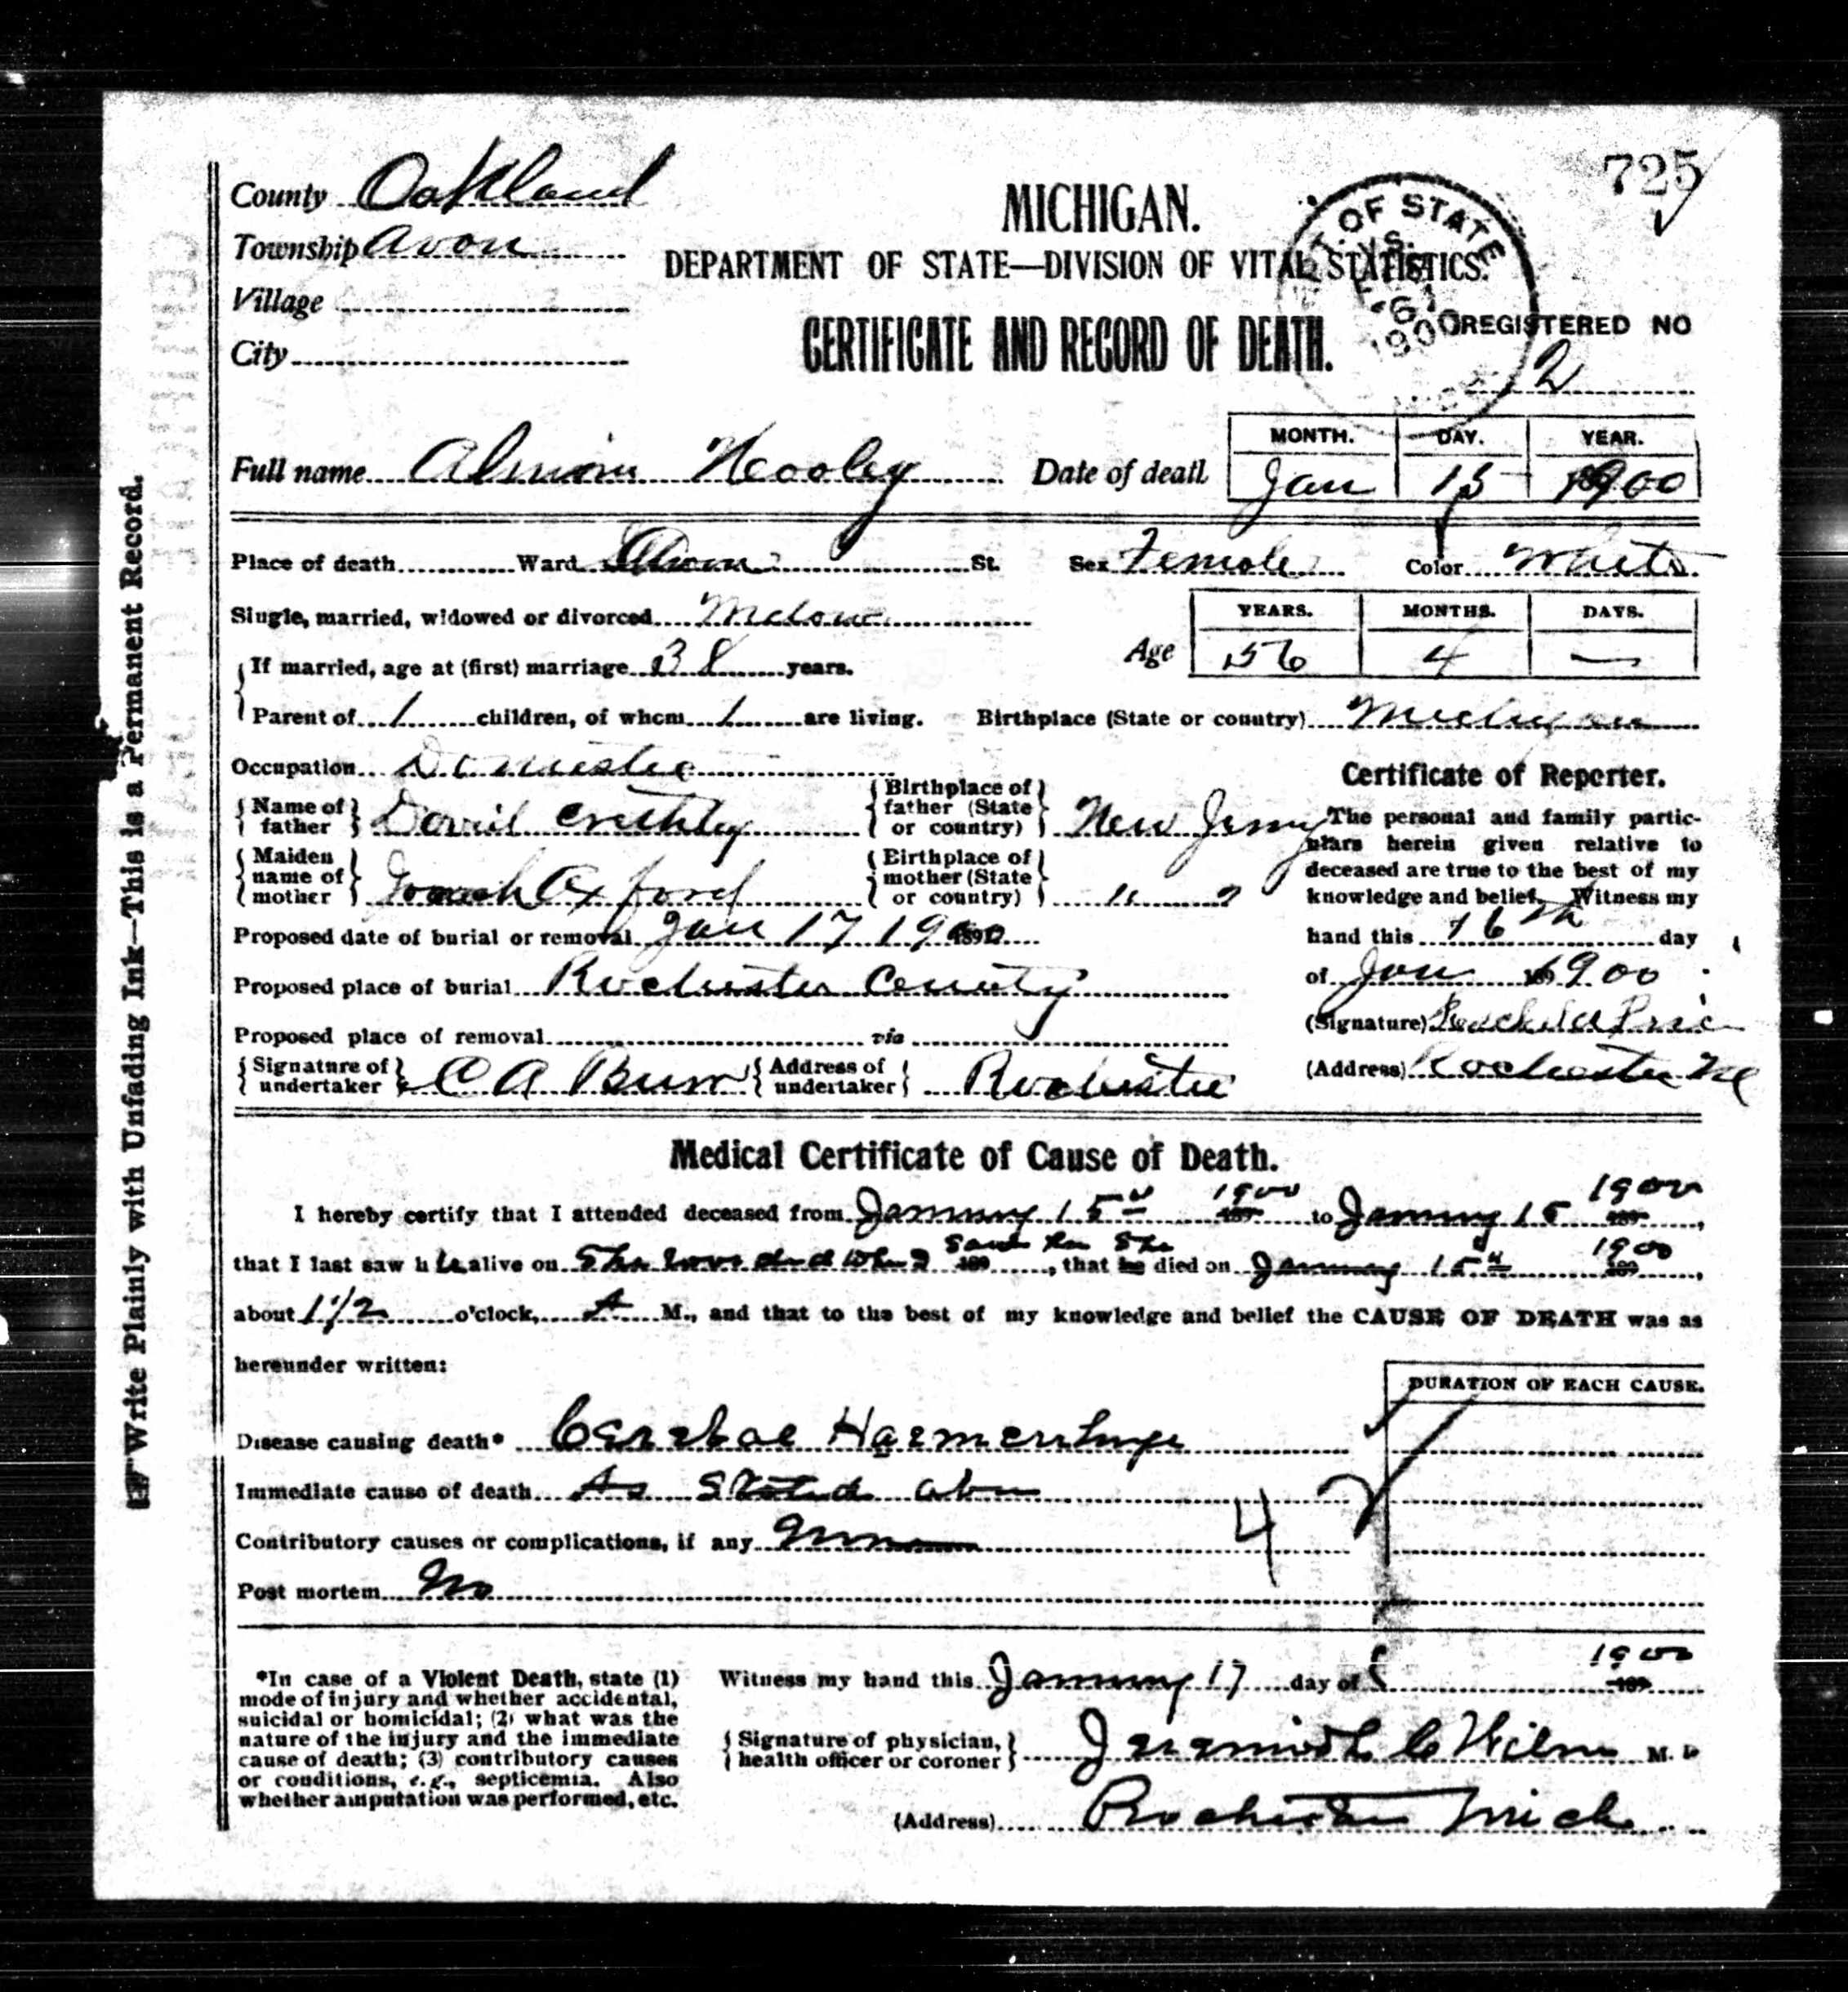 725
County Oakland
Township Avon
Village
City
MICHIGAN.
DEPARTMENT OF STATE—DIVISION OF VITAL STATISTICS.
CERTIFICATE AND RECORD OF DEATH.
OF STATE
1900
REGISTERED NO
2
Full name Date of death
MONTH. DAY. YEAR.
Jan 15 1900
Place of death Ward Avon St. Sex Female Color White
Single, married, widowed or divorced
If married, age at (first) marriage 38 years.
Age
YEARS. MONTHS. DAYS.
56 4 —
Parent of 1 children, of whom 1 are living. Birthplace (State or country) Michigan
Occupation Domestic
Name of father David
Birthplace of father (State or country) New Jersey
Maiden name of mother Oxford
Birthplace of mother (State or country) " "
Proposed date of burial or removal Jan 17 1900
Proposed place of burial Rochester County
Proposed place of removal via
Signature of undertaker C A Address of undertaker Rochester
Certificate of Reporter.
The personal and family partic-
ulars herein given relative to
deceased are true to the best of my
knowledge and belief. Witness my
hand this 16th day
of Jan 1900
(Signature)
(Address) Rochester
Medical Certificate of Cause of Death.
I hereby certify that I attended deceased from January 15th 1900 to January 15 1900,
that I last saw her alive on She was dead when I saw her She, that he died on January 15th 1900,
about 1 1/2 o'clock, A M., and that to the best of my knowledge and belief the CAUSE OF DEATH was as
hereunder written:
DURATION OF EACH CAUSE.
Disease causing death* Haemerrhage
Immediate cause of death As Stated above
4 2
Contributory causes or complications, if any
Post mortem No
*In case of a Violent Death, state (1)
mode of injury and whether accidental,
suicidal or homicidal; (2) what was the
nature of the injury and the immediate
cause of death; (3) contributory causes
or conditions, e.g., septicemia. Also
whether amputation was performed, etc.
Witness my hand this January 17 day of 1900
Signature of physician, health officer or coroner Jeremiah C Wilson M. D
(Address) Rochester Mich
Write Plainly with Unfading Ink—This is a Permanent Record.